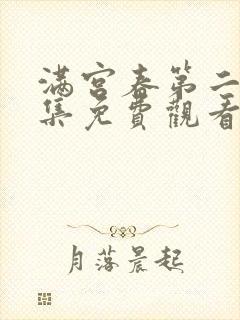 滿宮春第二
集免費觀看
月落晨起